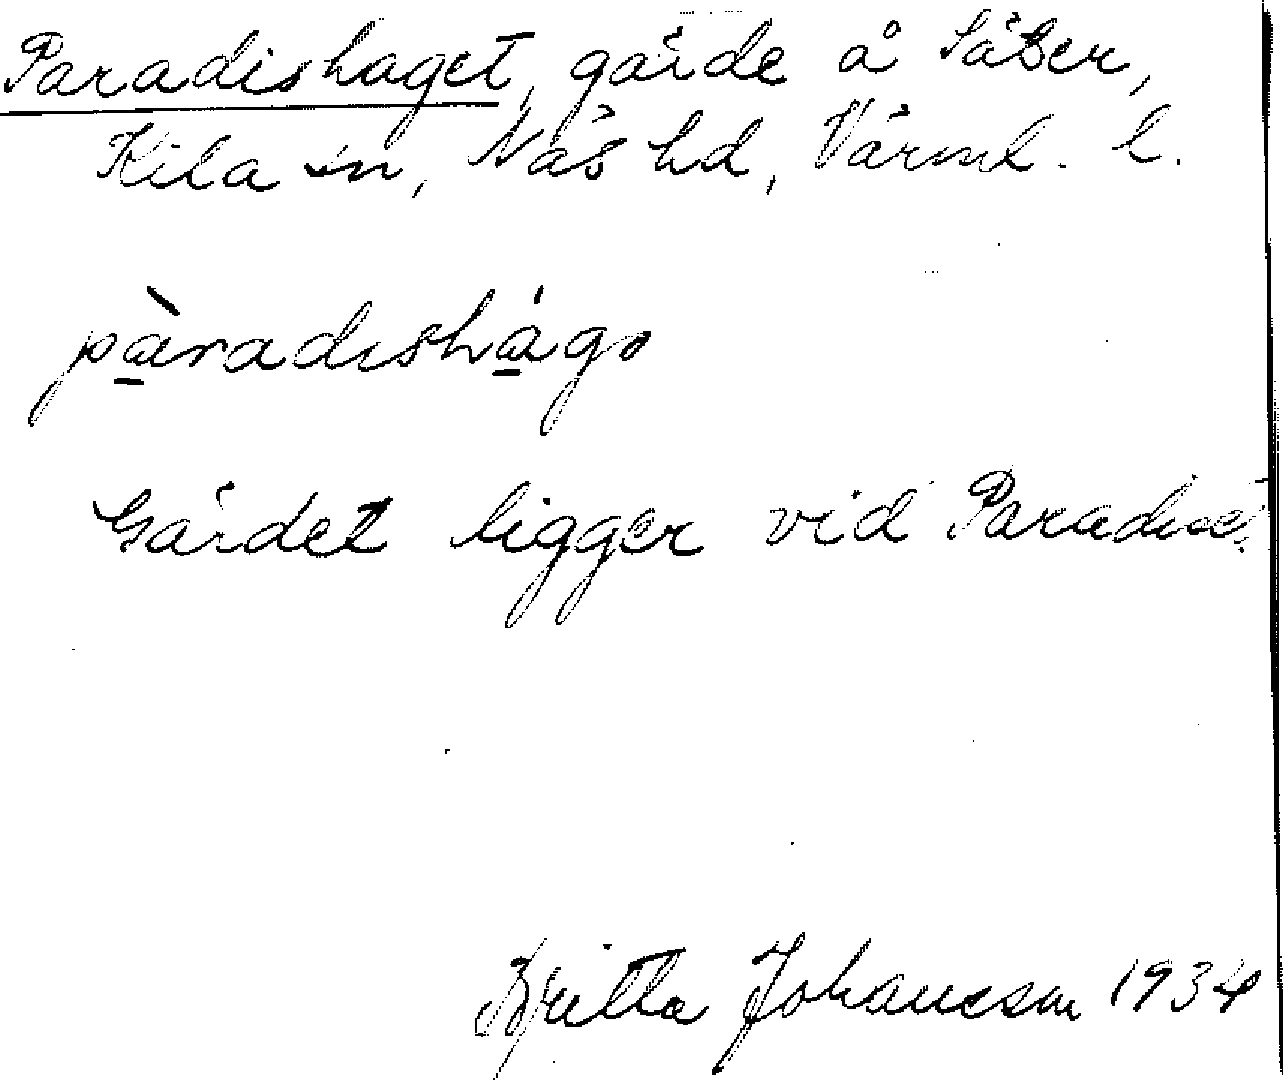 Paradishaget, gärde å Säter,
Kila sn, Näs hd, Värml. l.
pàradishágə
Gärdet ligger vid Paradiset.
Britta Johansson 1934